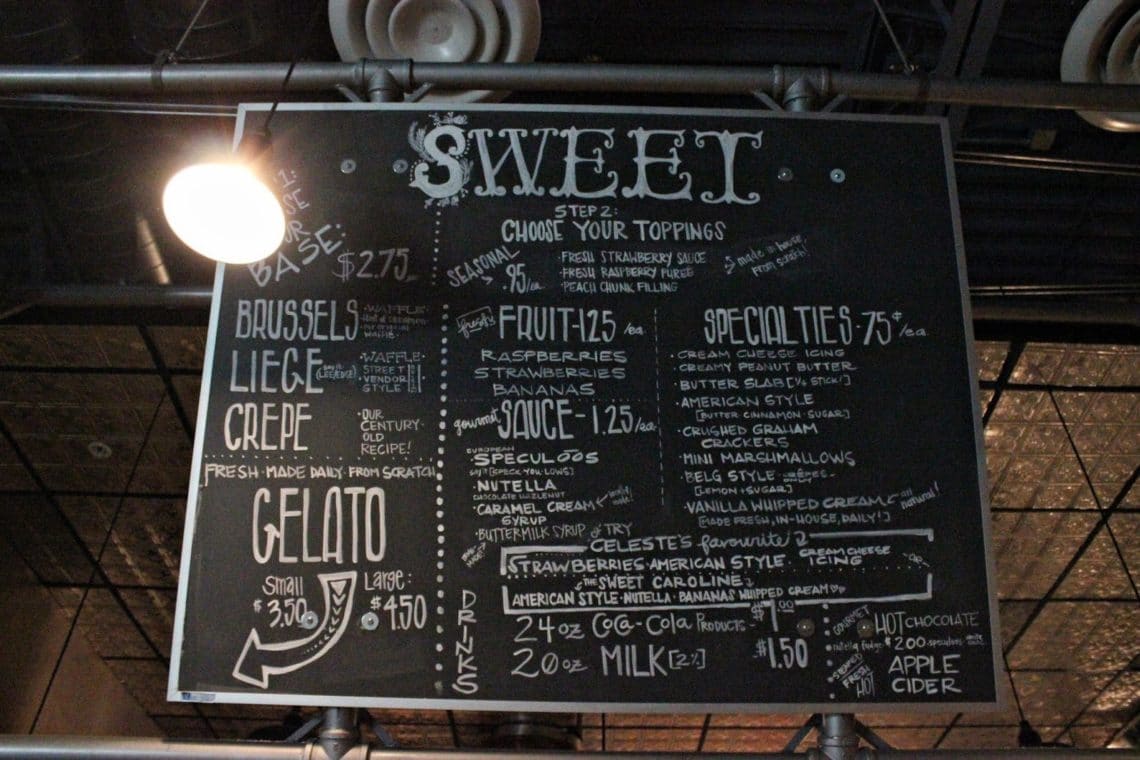 SWEET
BASE:
$2.75
BRUSSELS
·WAFFLE·
LIEGE
·WAFFLE·
STREET
VENDOR
STYLE
CREPE
·OUR
CENTURY·
OLD
RECIPE!
FRESH·MADE DAILY·FROM SCRATCH
GELATO
Small
$3.50
Large:
$4.50
STEP 2:
CHOOSE YOUR TOPPINGS
SEASONAL
.95/ea.
·FRESH STRAWBERRY SAUCE
·FRESH RASPBERRY PUREE
·PEACH CHUNK FILLING
made in house
from scratch!
freshly FRUIT-1.25/ea
RASPBERRIES
STRAWBERRIES
BANANAS
gourmet SAUCE-1.25/ea.
EUROPEAN
SPECULOOS
say it [SPECK·YOU·LOWS]
·NUTELLA
CHOCOLATE HAZELNUT
·CARAMEL CREAM
SYRUP
·BUTTERMILK SYRUP
SPECIALTIES·75¢/ea.
·CREAM CHEESE ICING
·CREAMY PEANUT BUTTER
·BUTTER SLAB [1/4 STICK!]
·AMERICAN STYLE
[BUTTER·CINNAMON·SUGAR]
·CRUSHED GRAHAM
CRACKERS
·MINI MARSHMALLOWS
·BELG STYLE
[LEMON+SUGAR]
·VANILLA WHIPPED CREAM all natural!
[MADE FRESH, IN-HOUSE, DAILY!]
TRY
CELESTE'S favourite
STRAWBERRIES·AMERICAN STYLE· CREAM CHEESE
ICING
·OR·
THE SWEET CAROLINE
AMERICAN STYLE·NUTELLA·BANANAS WHIPPED CREAM
DRINKS
24oz COCA-COLA PRODUCTS-
20oz MILK [2%] $1.50
GOURMET HOT CHOCOLATE
nutella fudge $2.00 speculoos white
STEAMED
FRESH
HOT
APPLE
CIDER